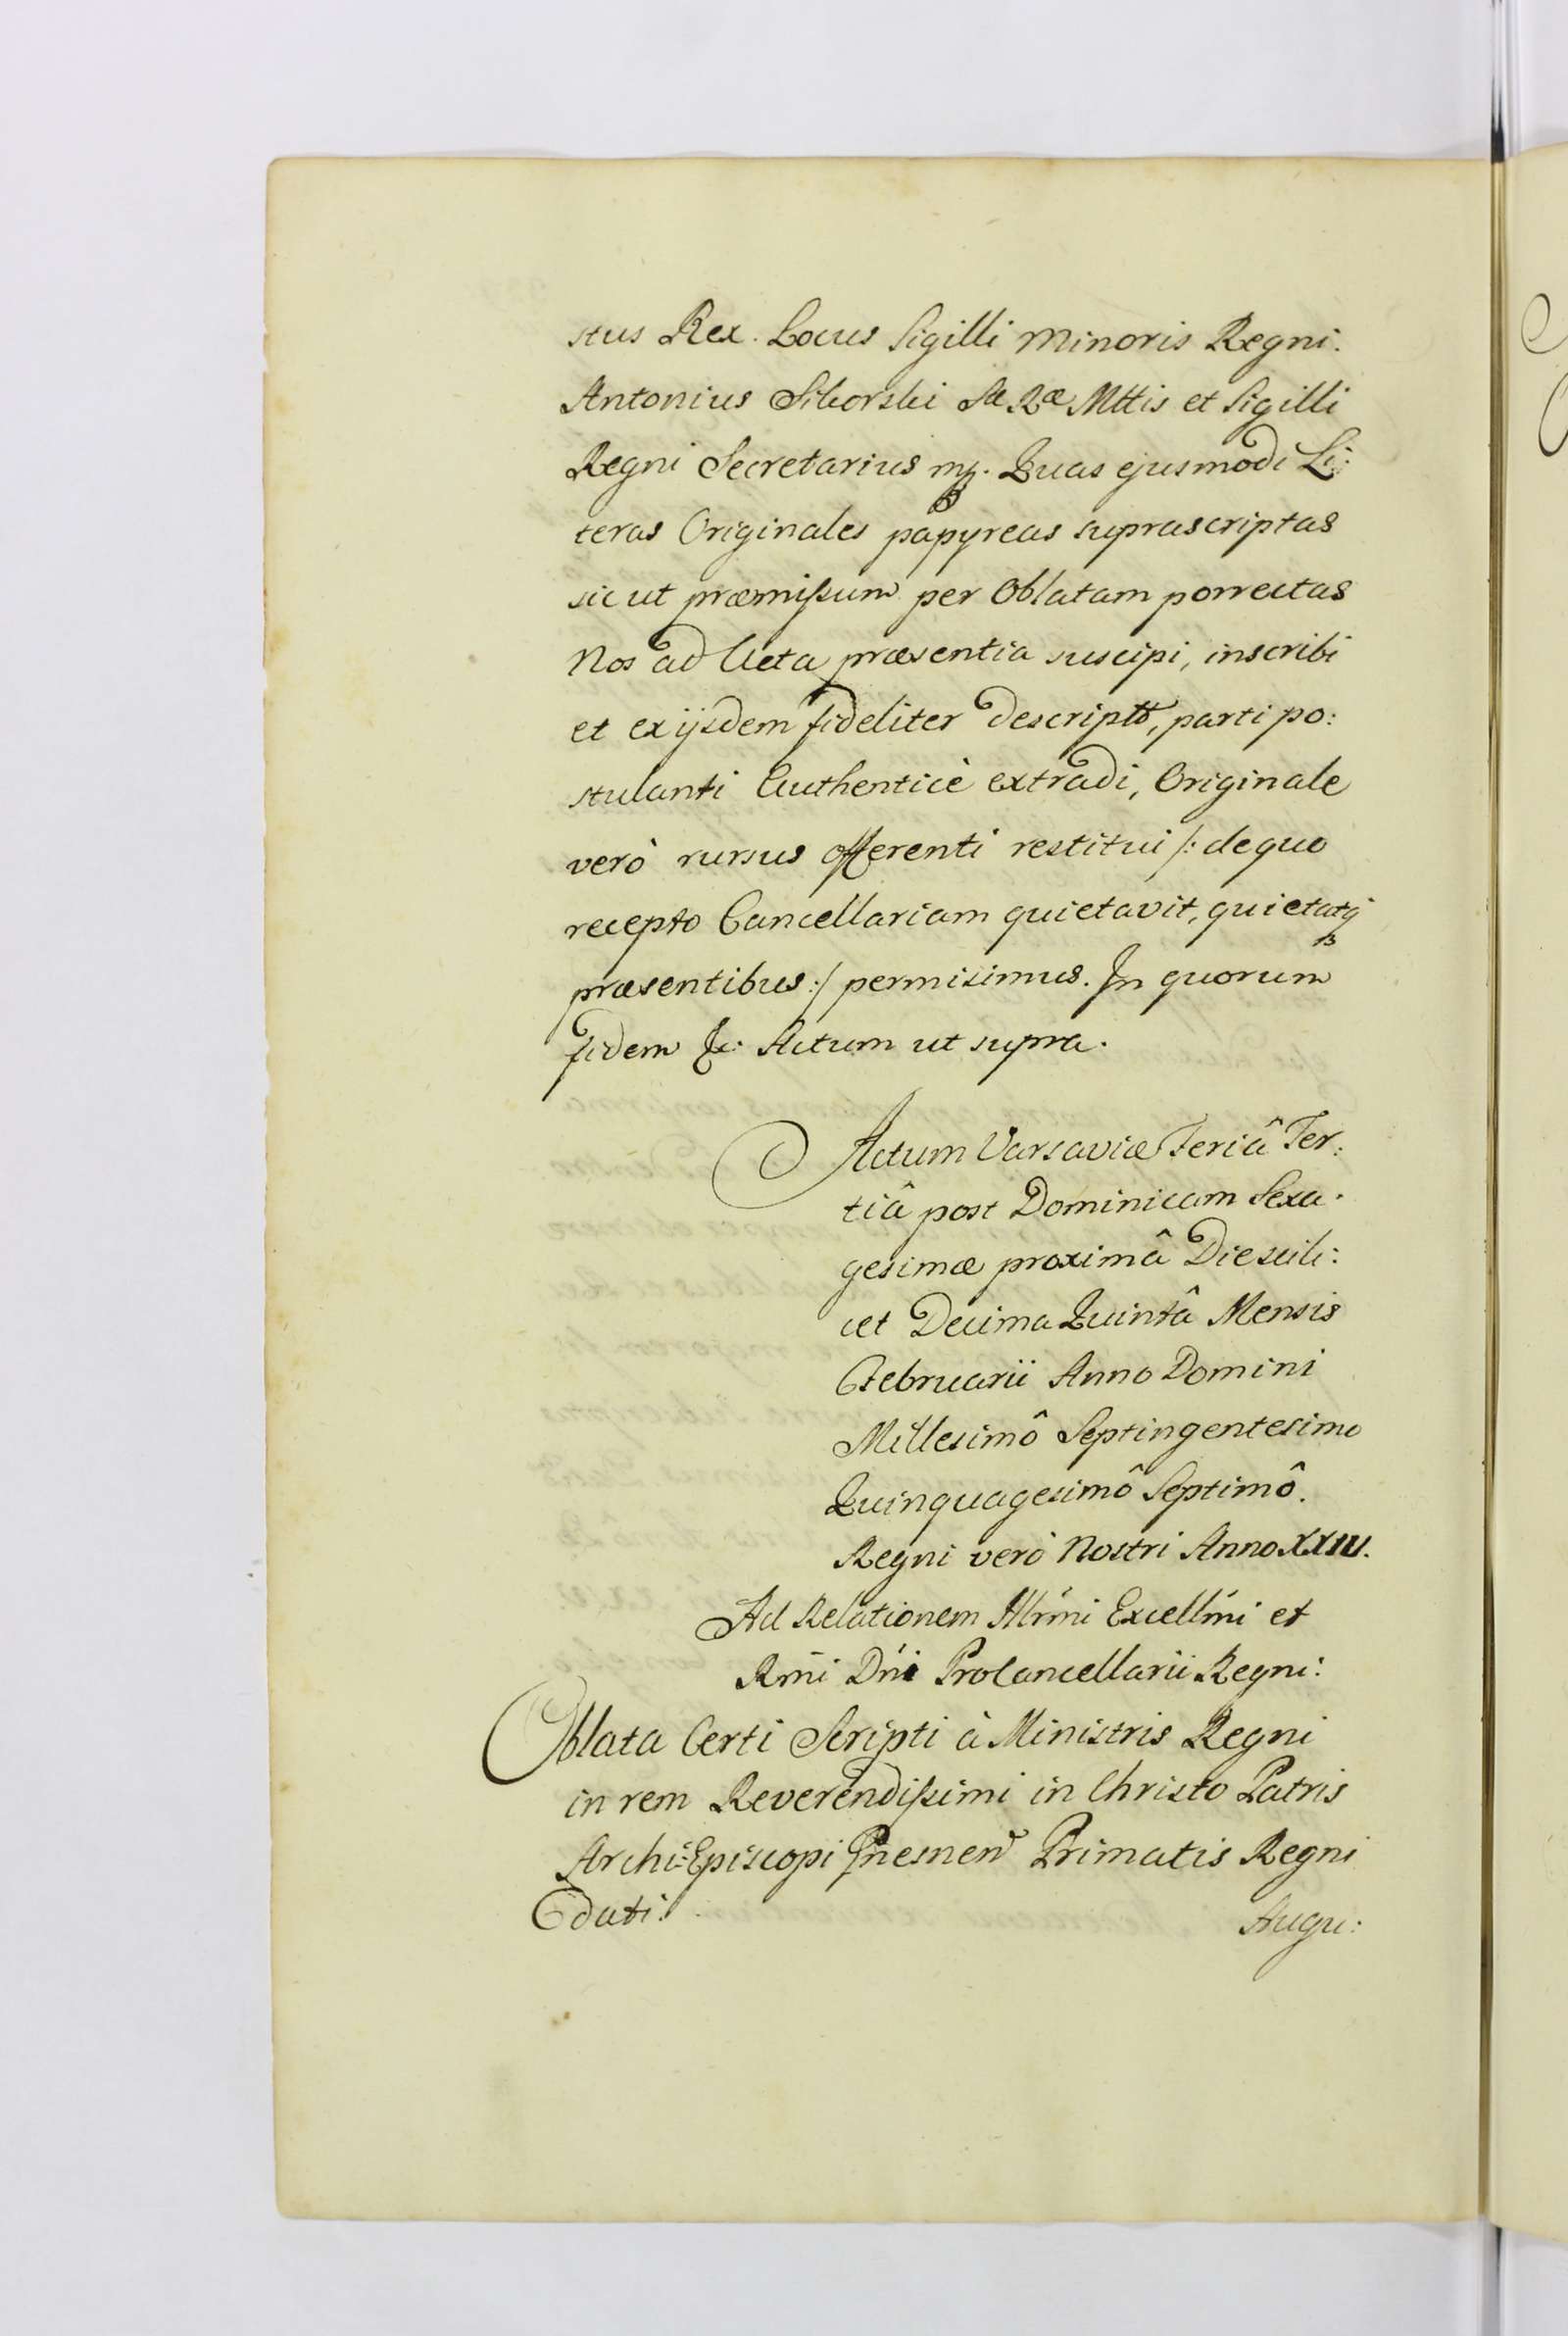 stus Rex. Locus Sigilli Minoris Regni.
Antonius Sikorski Sæ Ræ Mttis et Sigilli
Regni Secretarius mp. Quas ejusmodi Li:
teras Originales papyreas suprascriptas
sicut præmissum per Oblatam porrectas
Nos ad Acta præsentia suscipi, inscribi
et ex ijsdem fideliter descriptas, parti po:
stulanti Authenticè extradi, Originale
verò rursus offerenti restitui /: de quo
recepto Cancellariam quietavit, quietatq
præsentibus :/ permisimus. In quorum
fidem &c: Actum ut supra.
Actum Varsaviæ Feriâ Ter:
tiâ post Dominicam Sexa:
gesimæ proximâ Die scili:
cet Decima Quintâ Mensis
Februarii Anno Domini
Millesimô Septingentesimo
Quinquagesimô Septimô.
Regni verò Nostri Anno XXIV.
Ad Relationem Illrmi Excellmi et
Rmi Dni ProCancellarii Regni:
Oblata Certi Scripti à Ministris Regni
in rem Reverendissimi in Christo Patris
Archi-Episcopi Gnesnen Primatis Regni
dati.
Augu: